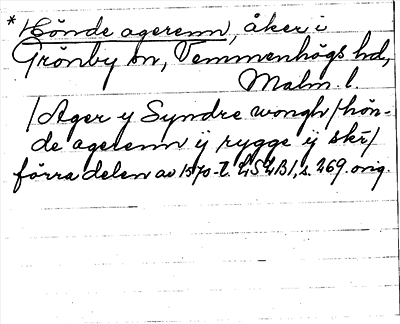 * Hönde agerenn, åker i
Grönby sn, Vemmenhögs hd,
Malm. l.
/Ager y Syndre wongh/hön-
de agerenn ij rygge ij skr̄/
förra delen av 1570-t. LSLB1, s. 269. orig.